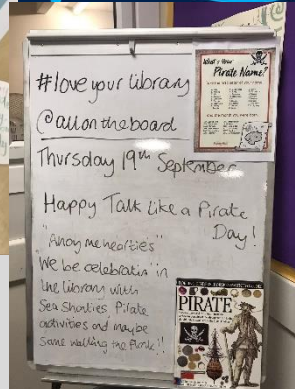 #love your library
@allontheboard
Thursday 19th September
Happy Talk Like a Pirate
Day!
"Ahoy me hearties"
We be celebratin' in
the library with
Sea Shanties, Pirate
activities and maybe
some walking the Plank!!
What's Your
Pirate Name?
PIRATE